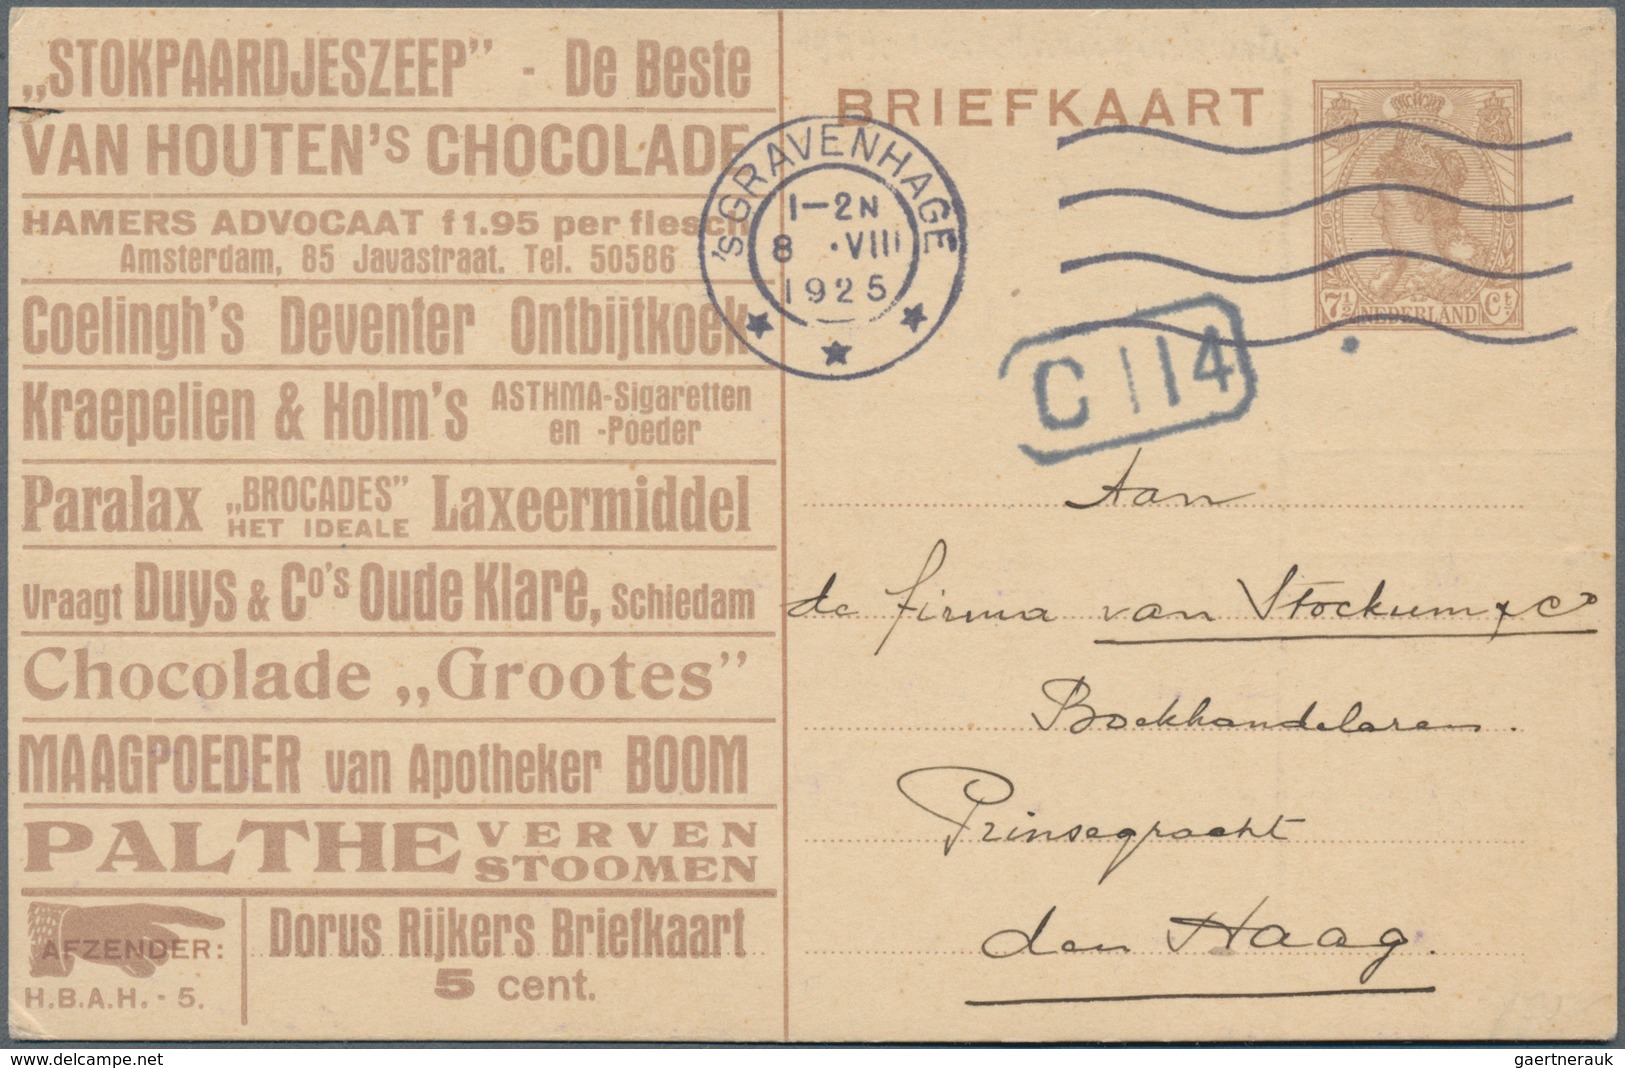 „STOKPAARDJESZEEP” - De Beste
VAN HOUTEN'S CHOCOLADE
HAMERS ADVOCAAT f 1.95 per flesch
Amsterdam, 85 Javastraat. Tel. 50586
Coelingh's Deventer Ontbijtkoek
Kraepelien & Holm's ASTHMA-Sigaretten
en -Poeder
Paralax „BROCADES” HET IDEALE Laxeermiddel
Vraagt Duys & Co's Oude Klare, Schiedam
Chocolade „Grootes”
MAAGPOEDER van Apotheker BOOM
PALTHE VERVEN
STOOMEN
AFZENDER:
H.B.A.H. - 5.
Dorus Rijkers Briefkaart
5 cent.
BRIEFKAART
'S GRAVENHAGE
1-2N
8 .VIII
1925
7½ NEDERLAND Ct
C 114
Aan
de firma van Stockum & Co
Boekhandelaren.
Prinsegracht
den Haag.
delcampe.net
gaertnerauk